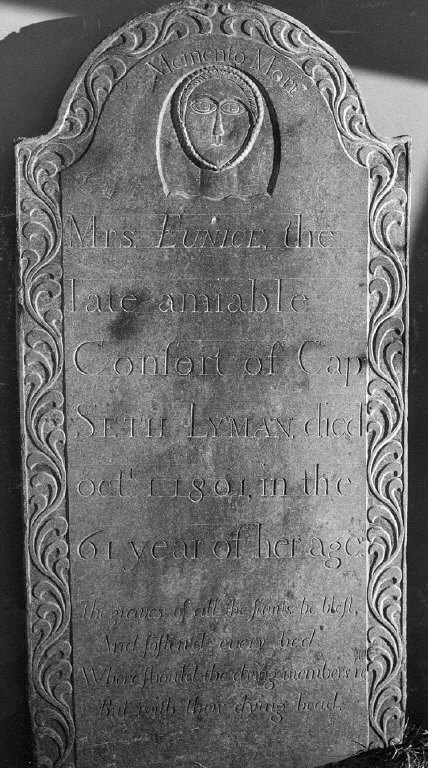 Memento Mori
Mrs EUNICE, the
late amiable
Conſort of Cap
SETH LYMAN, died
1801, in the
61 year of her age
The graves of all the ſaints he bleſt,
And ſoftend every bed.
Where ſhould the dying members re
But with their dying head.